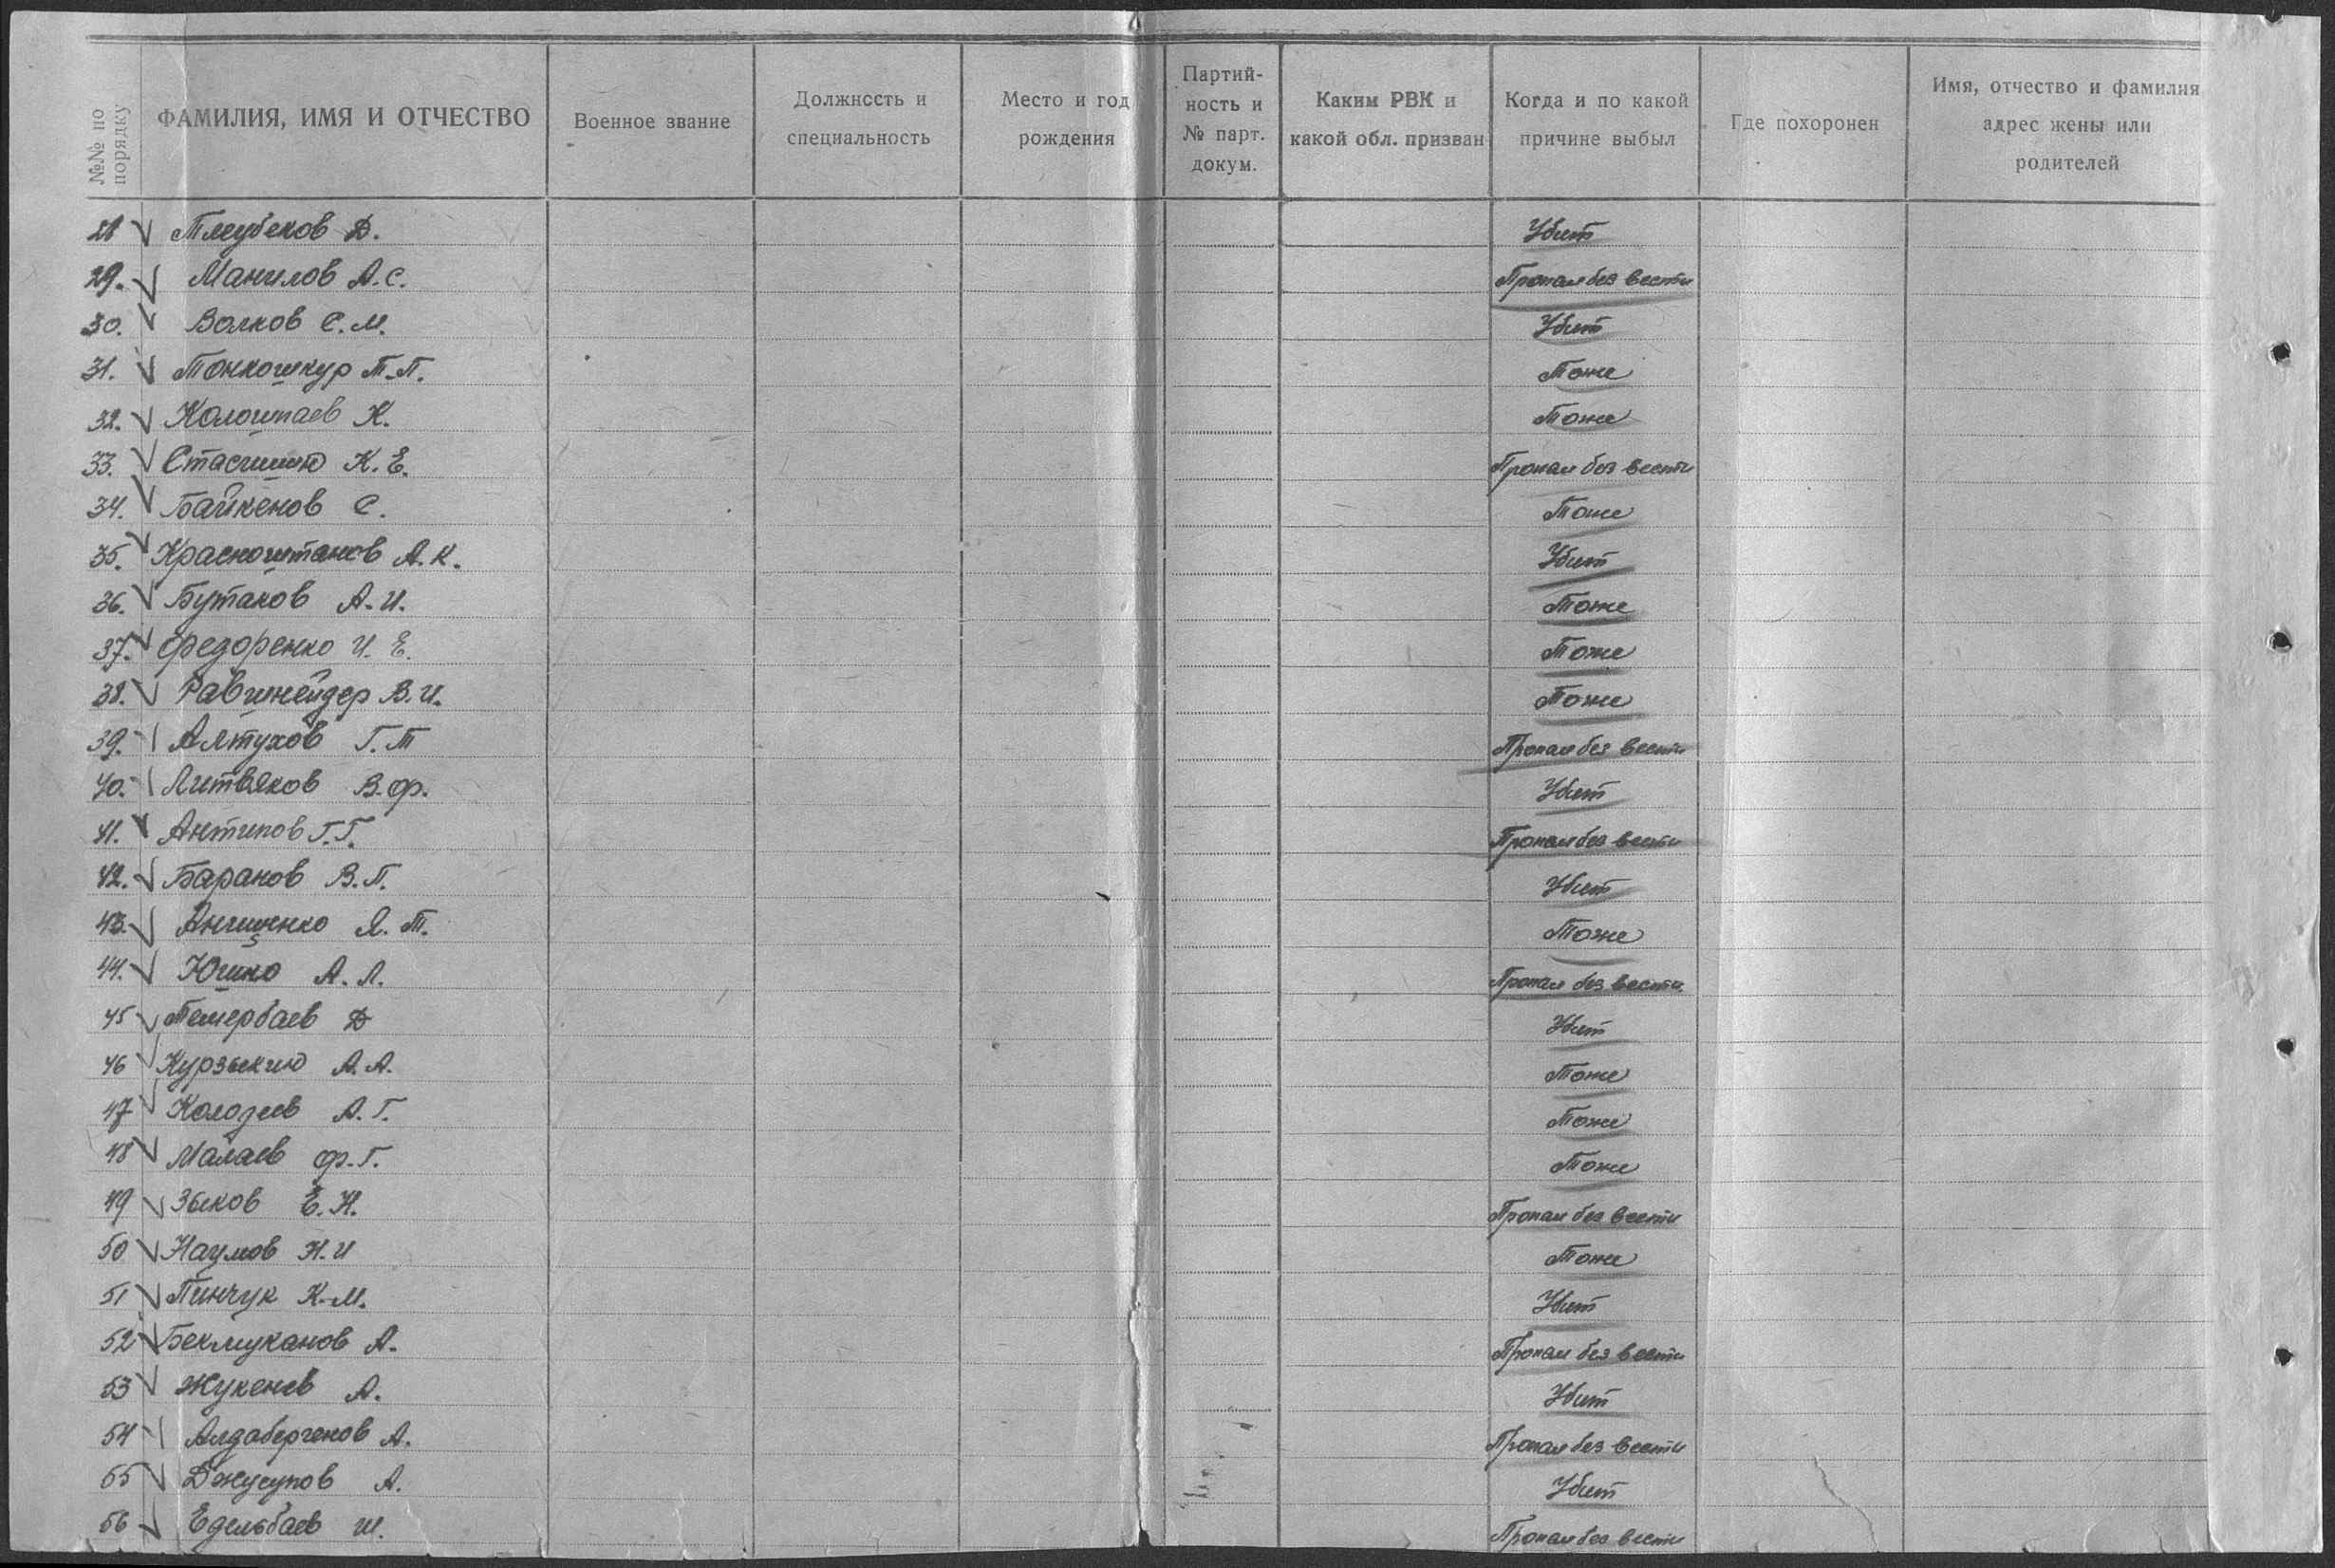 №№ по порядку
ФАМИЛИЯ, ИМЯ И ОТЧЕСТВО
Военное звание
Должнссть и специальность
Место и год рождения
Партий-ность и № парт. докум.
Каким РВК и какой обл. призван
Когда и по какой причине выбыл
Где похоронен
Имя, отчество и фамилия адрес жены или родителей
28 Тлеубеков Д. Убит
29. Мангилов А.С. Пропал без вести
30. Волков С.М. Убит
31. Тонкошкур Т.П. Тоже
32. Колошпаев К. Тоже
33. К.Е. Пропал без вести
34. Байкенов С. Тоже
35. Красноштанов А.К. Убит
36. Бутаков А.И. Тоже
37. Федоренко И.Е. Тоже
38. Равшнейдер В.И. Тоже
39. Алтухов Г.Т Пропал без вести
40. Литвяков В.Ф. Убит
41. Антипов Г.Г. Пропал без вести
42. Баранов В.П. Убит
43. Я.Т. Тоже
44. А.Л. Пропал без вести
45 Темербаев Д Убит
46 Курзыкин А.А. Тоже
47 Колодеев А.Г. Тоже
48 Малаев Ф.Г. Тоже
49 Зыков Е.Н. Пропал без вести
50 Наумов Н.И Тоже
51 Пинчук К.М. Убит
52 Бекмуканов А. Пропал без вести
53 Жукенев А. Убит
54 Алдабергенов А. Пропал без вести
55 Джусупов А. Убит
56 Едельбаев Ш. Пропал без вести